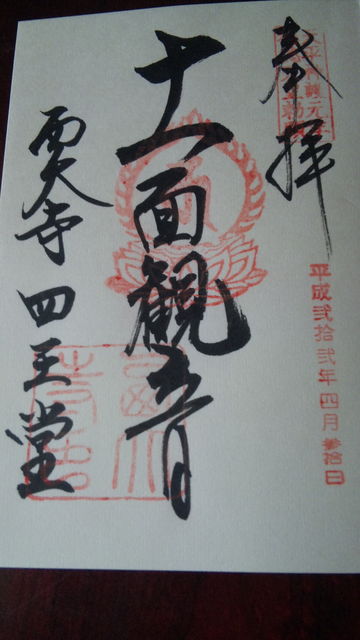 奉拝
平成弐拾弐年四月参拾日
十一面観音
西大寺 四王堂